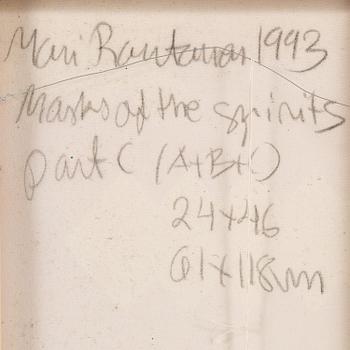 Mari Rantanen 1993
Masks of the spirits
part C (A+B+C)
24x46
61x118cm